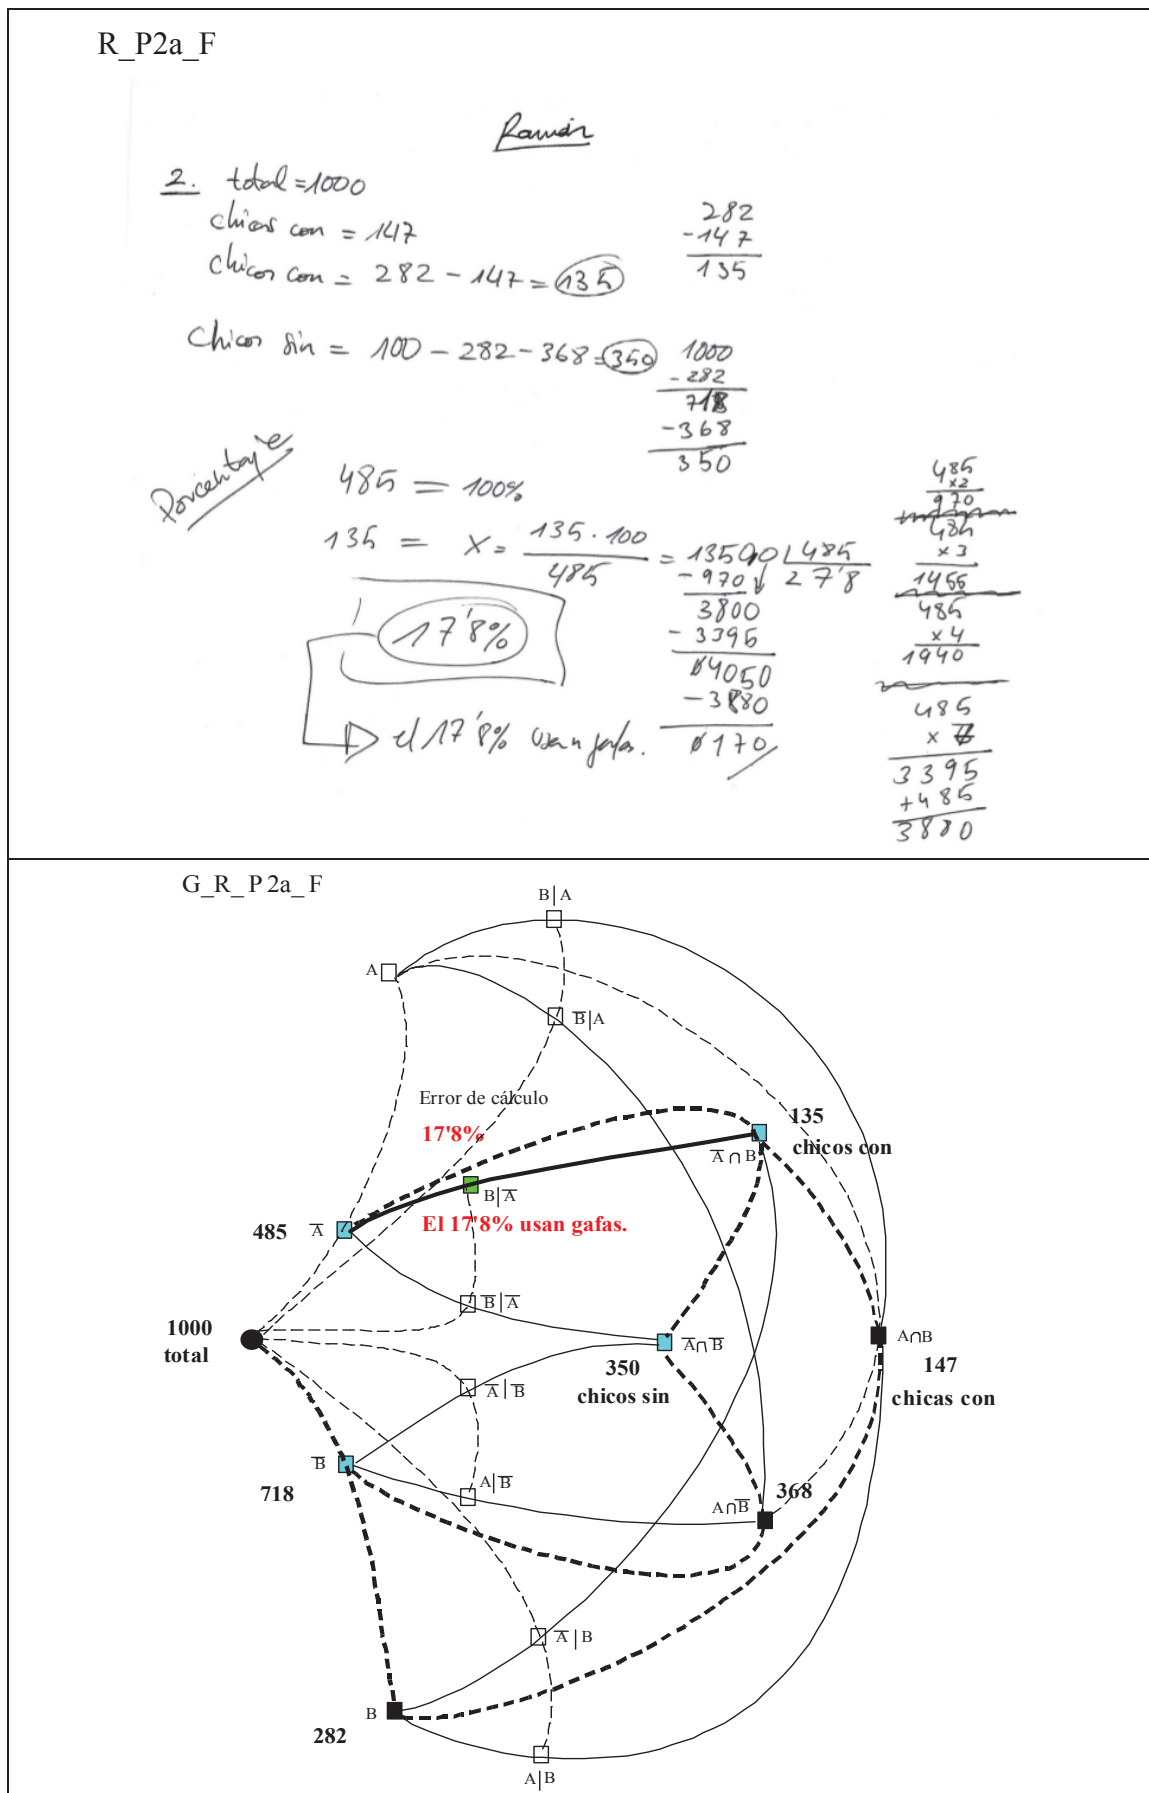 R_P2a_F
Ramón
2. total = 1000
chicas con = 147
chicos con = 282 - 147 = 135
282
-147
135
Chicos sin = 100 - 282 - 368 = 350
1000
-282
718
-368
350
Porcentaje
485 = 100%
135 = x = 135 · 100 / 485 = 13500 | 485
27'8
-970
3800
-3395
04050
-3880
0170
17'8%
el 17'8% usan gafas.
485
x2
970
485
x3
1455
485
x4
1940
485
x 7
3395
+485
3880
G_R_P2a_F
B|A
A
B̅|A
Error de cálculo
17'8%
135
chicos con
A̅∩B
B|A̅
485 A̅
El 17'8% usan gafas.
B̅|A̅
1000
total
A̅∩B̅
A∩B
350
chicos sin
147
chicas con
A̅|B̅
B̅
718
A|B̅
368
A∩B̅
A̅|B
B
282
A|B